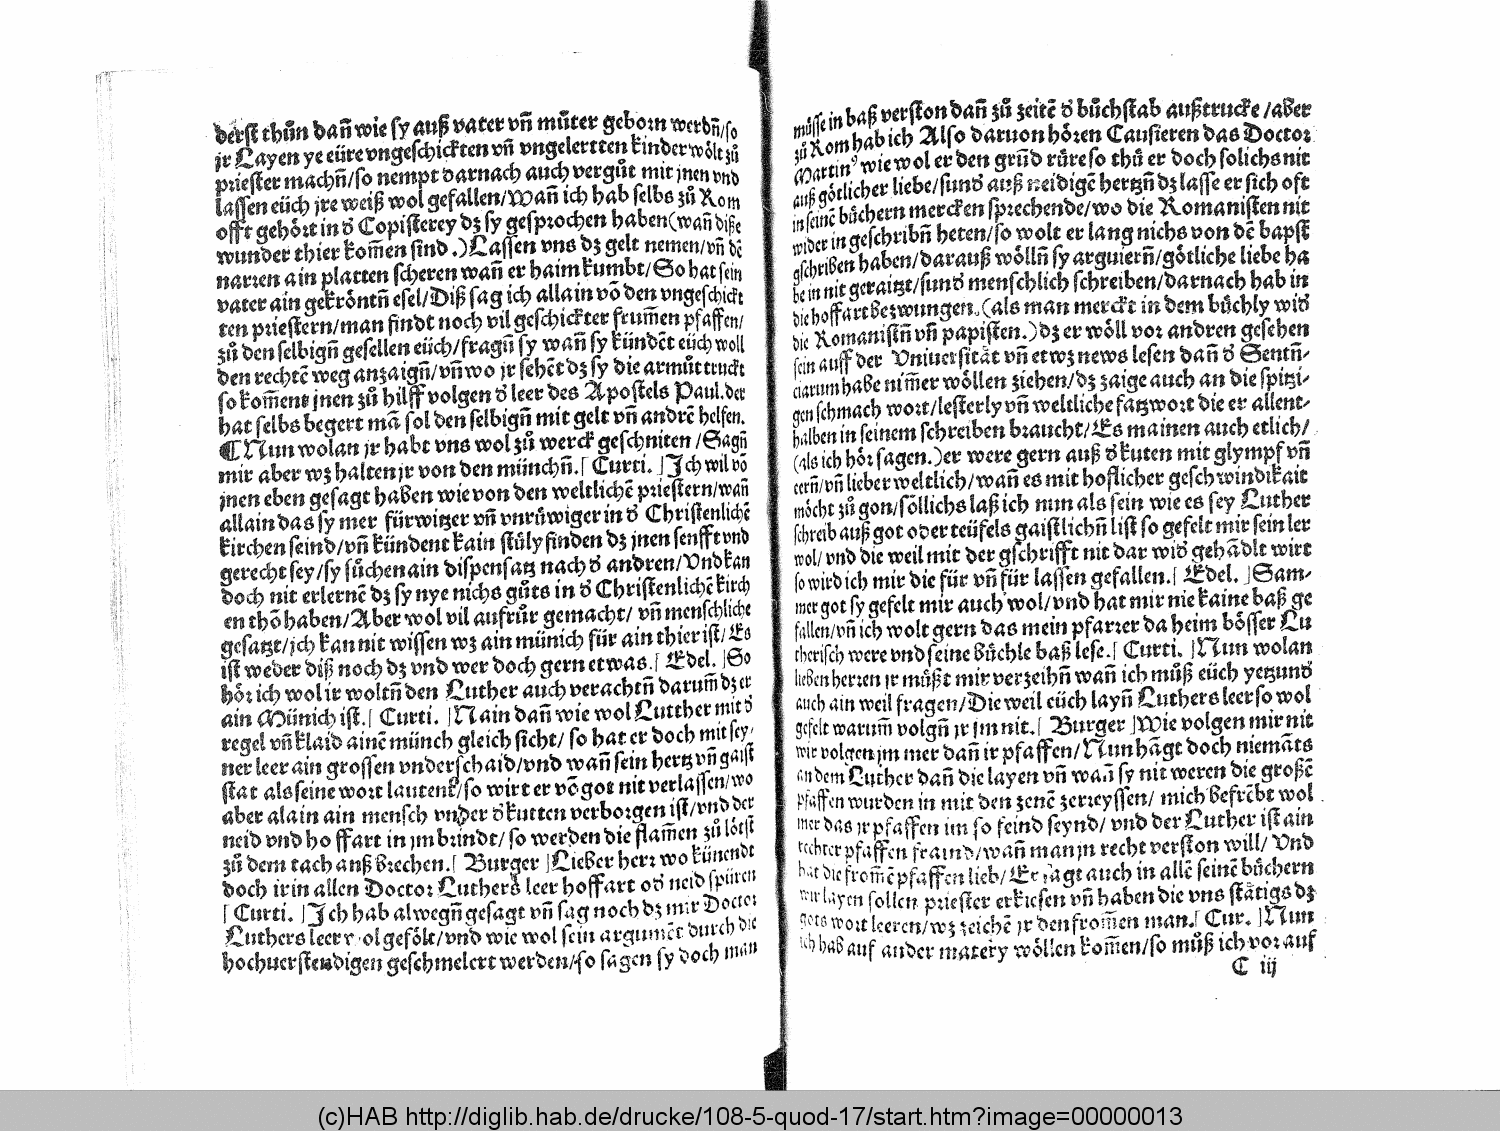 derſt thůn dañ wie ſy auß vater vñ můter geborn werdñ/ſo
jr Layen ye eüre vngeſchickten vñ vngelertten kinder wölt zů
prieſter machñ/ſo nempt darnach auch vergůt mit jnen vnd
laſſen eüch jre weiß wol gefallen/Wañ ich hab ſelbs zů Rom
offt gehört in d' Copiſterey dz ſy geſprochen haben(wañ diße
wunder thier kom̄en ſind.)Laſſen vns dz gelt nemen/vñ dē
narren ain platten ſcheren wañ er haim kumbt/So hat ſein
vater ain gekröntñ eſel/Diß ſag ich allain võ den vngeſchickt
ten prieſtern/man findt noch vil geſchickter frum̄en pfaffen/
zů den ſelbigñ geſellen eüch/fragñ ſy wañ ſy kündēt eüch woll
den rechtē weg anzaigñ/vñ wo jr ſehēt dz ſy die armůt truckt
ſo kom̄ent jnen zů hilff volgen d' leer des Apoſtels Paul.der
hat ſelbs begert mā ſol den ſelbigñ mit gelt vñ andrē helfen.
¶Nun wolan jr habt vns wol zů werck geſchniten/Sagñ
mir aber wz halten jr von den münchñ.[ Curti. ]Ich wil võ
jnen eben geſagt haben wie von den weltlichē prieſtern/wañ
allain das ſy mer fürwitzer vñ vnrůwiger in d' Chriſtenlichē
kirchen ſeind/vñ kündent kain ſtüly finden dz jnen ſenfft vnd
gerecht ſey/ſy ſůchen ain diſpenſatz nach d' andren/Vnd kan
doch nit erlernē dz ſy nye nichs gůts in d' Chriſtenlichē kirch
en thõ haben/Aber wol vil aufrůr gemacht/ vñ menſchliche
geſatzt/ich kan nit wiſſen wz ain münich für ain thier iſt/Es
iſt weder diß noch dz vnd wer doch gern etwas.[ Edel. ]So
hör ich wol ir woltñ den Luther auch verachtñ darum̄ dz er
ain Münich iſt.[ Curti. ]Nain dañ wie wol Lutther mit d'
regel vñ klaid ainē münch gleich ſicht/ ſo hat er doch mit ſey/
ner leer ain groſſen vnderſchaid/vnd wañ ſein hertz vñ gaiſt
ſtat als ſeine wort lautent/ſo wirt er võ got nit verlaſſen/wo
aber alain ain menſch vnder d' kutten verborgen iſt/vnd der
neid vnd hoffart in jm brindt/ ſo werden die flam̄en zů lötſt
zů dem tach auß brechen.[ Burger ]Lieber herr wo künendt
doch ir in allen Doctor Luthers leer hoffart od' neid ſpüren
[ Curti. ]Ich hab alwegñ geſagt vñ ſag noch dz mir Doctor
Luthers leer wol gefölt/vnd wie wol ſein argumēt durch die
hochuerſtendigen geſchmelert werden/ſo ſagen ſy doch man
müſſe in baß verſton dañ zů zeitē d' bůchſtab außtrucke/aber
zů Rom hab ich Alſo daruon hören Cauſieren das Doctor
Martin' wie wol er den grūd rüre ſo thů er doch ſolichs nit
auß götlicher liebe/ſund' auß neidigē hertzñ dz laſſe er ſich oft
in ſeinē bůchern mercken ſprechende/wo die Romaniſten nit
wider in geſchribñ heten/ſo wolt er lang nichs von dē bapſt
gſchriben haben/darauß wöllñ ſy arguierñ/götliche liebe ha
be in nit geraitzt/ſund' menſchlich ſchreiben/darnach hab in
die hoffart bezwungen.(als man merckt in dem bůchly wid'
die Romaniſtñ vñ papiſten.)dz er wöll vor andren geſehen
ſein auff der Vniuerſität vñ etwz news leſen dañ d' Sentñ-
ciarum habe nim̄er wöllen ziehen/dz zaige auch an die ſpitzi-
gen ſchmach wort/leſterly vñ weltliche fatzwort die er allent-
halben in ſeinem ſchreiben braucht/Es mainen auch etlich/
(als ich hör ſagen.)er were gern auß d' kuten mit glympf vñ
eern/vñ lieber weltlich/wañ es mit hoflicher geſchwindikait
möcht zů gon/ſöllichs laß ich nun als ſein wie es ſey Luther
ſchreib auß got oder teüfels gaiſtlichñ liſt ſo gefelt mir ſein ler
wol/ vnd die weil mit der gſchrifft nit dar wid' gehādlt wirt
ſo wird ich mir die für vñ für laſſen gefallen.[ Edel. ]Sam-
mer got ſy gefelt mir auch wol/vnd hat mir nie kaine baß ge
fallen/vñ ich wolt gern das mein pfarrer da heim böſſer Lu
theriſch were vnd ſeine bůchle baß leſe.[ Curti. ]Nun wolan
lieben herren jr můßt mir verzeihñ wañ ich můß eüch yetzund'
auch ain weil fragen/Die weil eüch layñ Luthers leer ſo wol
gefelt warum̄ volgñ jr jm nit.[ Burger ]Wie volgen mir nit
wir volgen jm mer dañ ir pfaffen/Nun hāgt doch niemāts
an dem Luther dañ die layen vñ wañ ſy nit weren die großē
pfaffen wurden in mit den zenē zerreyſſen/ mich befrēbt wol
mer das jr pfaffen im ſo feind ſeynd/ vnd der Luther iſt ain
rechter pfaffen fraind/wañ man jn recht verſton will/ Vnd
hat die from̄ē pfaffen lieb/Er ſagt auch in allē ſeinē bůchern
wir layen ſollen prieſter erkieſen vñ haben die vns ſtätigs dz
gots wort leeren/wz zeichē jr den from̄en man.[ Cur. ]Nun
ich hab auf ander matery wöllen kom̄en/ſo můß ich vor auf
C iij
(c)HAB http://diglib.hab.de/drucke/108-5-quod-17/start.htm?image=00000013